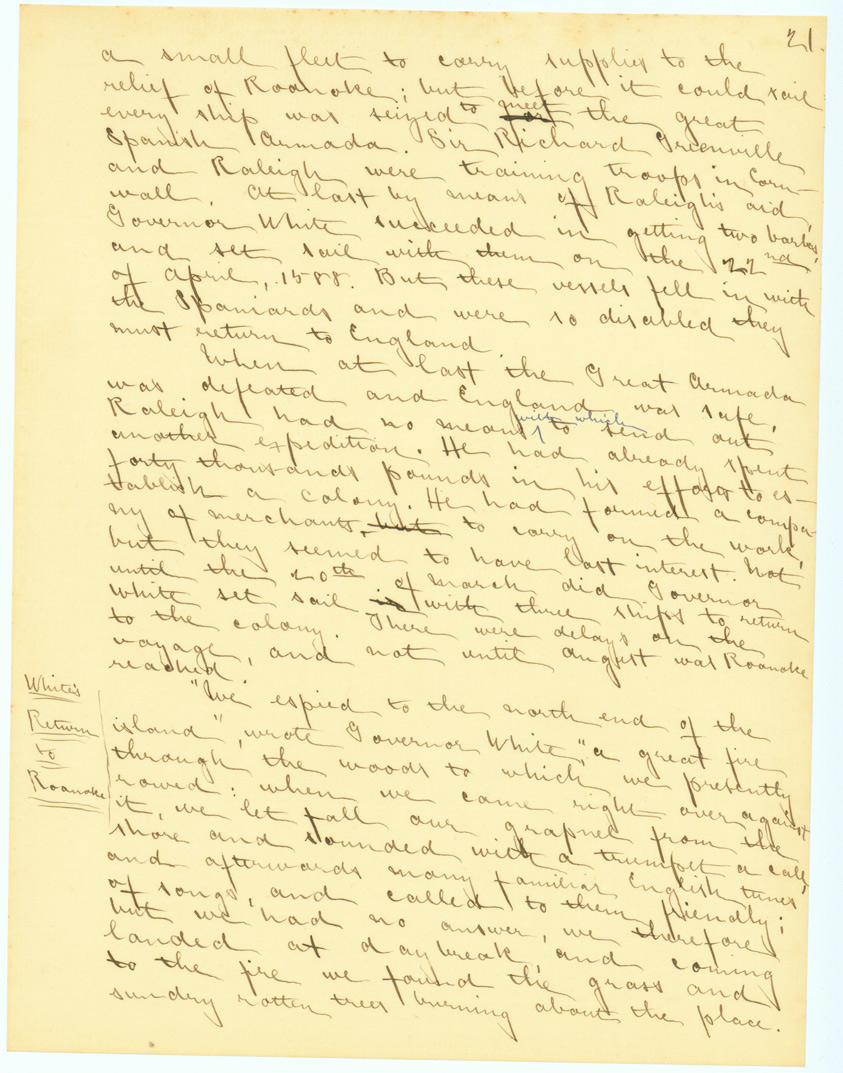 21.
a small fleet to carry supplies to the
relief of Roanoke; but before it could sail
every ship was seized to meet the great
Spanish Armada. Sir Richard Greenville
and Raleigh were training troops in Corn-
wall. At last by means of Raleigh's aid,
Governor White succeeded in getting two barks,
and set sail with them on the 22nd
of April, 1588. But these vessels fell in with
the Spaniards and were so disabled they
must return to England.
When at last the Great Armada
was defeated and England was safe,
Raleigh had no means with which to send out
another expedition. He had already spent
forty thousands pounds in his efforts to es-
tablish a colony. He had formed a compa-
ny of merchants, but to carry on the work,
but they seemed to have lost interest. Not
until the 20th of March did Governor
White set sail in with three ships to return
to the colony. There were delays on the
voyage, and not until August was Roanoke
reached.
White's
Return
to
Roanoke
"We espied to the north end of the
island", wrote Governor White, "a great fire
through the woods to which we presently
rowed: when we came right over against
it, we let fall our grapnel from the
shore and sounded with a trumpet a call,
and afterwards many familiar English tunes
of songs, and called to them friendly;
but we had no answer, we therefore
landed at daybreak, and coming
to the fire we found the grass and
sundry rotten trees burning about the place.